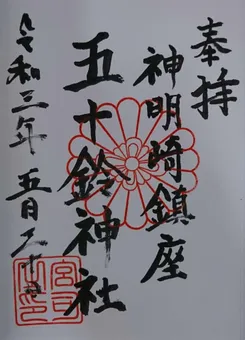 奉拝
神明崎鎮座
五十鈴神社
令和三年五月二十日